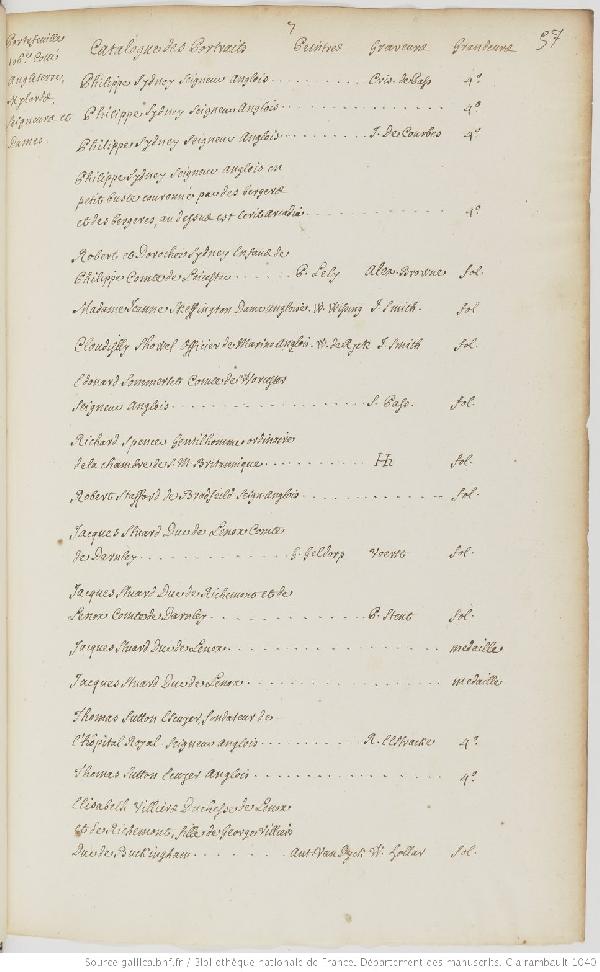 7
57
Portefeuille
Angleterre,
Mylords,
Seigneurs et
Dames.
Catalogue des Portraits Peintres Graveurs Grandeurs
Philippe Sydney Seigneur Anglois Cris. de Pass 4º
Philippe Sydney Seigneur Anglois 4º
Philippe Sydney Seigneur Anglois J. De Courbes 4º
Philippe Sydney Seigneur anglois en
petit buste couronné par des bergers
et des bergeres, au dessus est écrit arcadia 4º
Robert et Dorothée Sydney Enfans de
Philippe Comte de Leicestre P. Lely Alex. Browne fol.
Madame Jeanne Skeffington Dame angloise. W. Wissing J. Smith. fol
Cloudislly Shovel Officier de Marine Anglois. W. de Ryck J. Smith fol.
Edouard Sommerset Comte de Worcester
Seigneur Anglois S. Pass. fol.
Richard Spence Gentilhomme ordinaire
de la chambre de S. M. Britannique HH fol.
Robert Stafford de Bradfeild Seign. Anglois fol.
Jacques Stuard Duc de Lenox Comte
de Darnley G. Geldorp Voerst fol.
Jacques Stuard Duc de Richemont et de
Lenox Comte de Darnley P. Stent fol.
Jacques Stuard Duc de Lenox medaille
Jacques Stuard Duc de Lenox medaille
Thomas Sutton Ecuyer, fondateur de
l'hôpital Royal Seigneur anglois R. Elstracke 4º
Thomas Sutton Ecuyer Anglois 4º
Elisabeth Villiers Duchesse de Lenox
et de Richemont, fille de George Villiers
Duc de Buckingham Ant. Van Dyck W. Hollar fol.
Source gallica.bnf.fr / Bibliothèque nationale de France. Département des manuscrits. Clairambault 1040